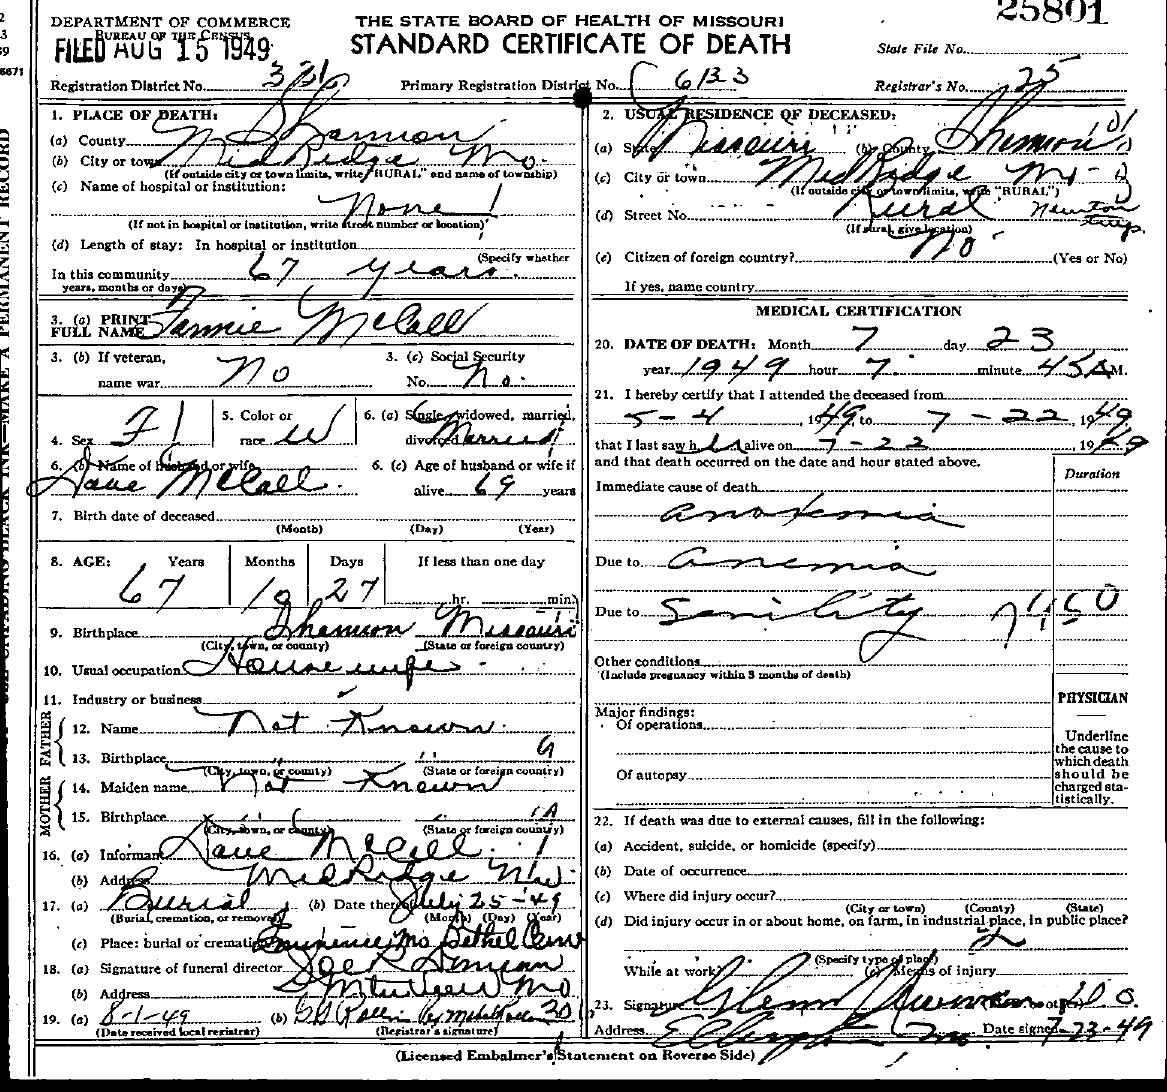 25801
DEPARTMENT OF COMMERCE
BUREAU OF THE CENSUS
FILED AUG 15 1949
THE STATE BOARD OF HEALTH OF MISSOURI
STANDARD CERTIFICATE OF DEATH
State File No.
Registration District No.
Primary Registration District No. 6133
Registrar's No. 25
1. PLACE OF DEATH:
(a) County Shannon
(b) City or town Mid Ridge Mo.
(If outside city or town limits, write "RURAL" and name of township)
(c) Name of hospital or institution:
None
(If not in hospital or institution, write street number or location)
(d) Length of stay: In hospital or institution
(Specify whether
In this community 67 years.
years, months or days)
3. (a) PRINT FULL NAME Fannie McCall
3. (b) If veteran, name war No
3. (c) Social Security No. No.
4. Sex F
5. Color or race W
6. (a) Single, widowed, married, divorced Married
6. (b) Name of husband or wife Dave McCall.
6. (c) Age of husband or wife if alive 69 years
7. Birth date of deceased
(Month) (Day) (Year)
8. AGE: Years Months Days If less than one day
67 10 27 hr. min.
9. Birthplace Shannon Missouri
(City, town, or county) (State or foreign country)
10. Usual occupation House wife
11. Industry or business
FATHER
12. Name Not Known
13. Birthplace 9
(City, town, or county) (State or foreign country)
MOTHER
14. Maiden name Not Known
15. Birthplace
(City, town, or county) (State or foreign country)
16. (a) Informant Dave McCall.
(b) Address Mid Ridge Mo.
17. (a) Burial (b) Date thereof July 25-49
(Burial, cremation, or removal) (Month) (Day) (Year)
(c) Place: burial or cremation Eminence Mo Bethel Cem
18. (a) Signature of funeral director
(b) Address Mo
19. (a) 8-1-49 (b)
(Date received local registrar) (Registrar's signature)
2. USUAL RESIDENCE OF DECEASED:
(a) State Missouri (b) County Shannon
(c) City or town Mid Ridge Mo-
(If outside city or town limits, write "RURAL")
(d) Street No. Rural Newton twp.
(If rural, give location)
(e) Citizen of foreign country? No (Yes or No)
If yes, name country
MEDICAL CERTIFICATION
20. DATE OF DEATH: Month 7 day 23
year 1949 hour 7. minute 45 A.M.
21. I hereby certify that I attended the deceased from
5-4, 1949 to 7-22, 1949
that I last saw her alive on 7-22 1949
and that death occurred on the date and hour stated above.
Duration
Immediate cause of death
anoxemia
Due to anemia
Due to Senility
Other conditions
(Include pregnancy within 3 months of death)
Major findings:
Of operations
Of autopsy
PHYSICIAN
Underline
the cause to
which death
should be
charged sta-
tistically.
22. If death was due to external causes, fill in the following:
(a) Accident, suicide, or homicide (specify)
(b) Date of occurrence
(c) Where did injury occur?
(City or town) (County) (State)
(d) Did injury occur in or about home, on farm, in industrial place, in public place?
2
(Specify type of place)
While at work? (e) Means of injury
23. Signature Glenn D.O.
Address Ellington Mo. Date signed 7-23-49
(Licensed Embalmer's Statement on Reverse Side)